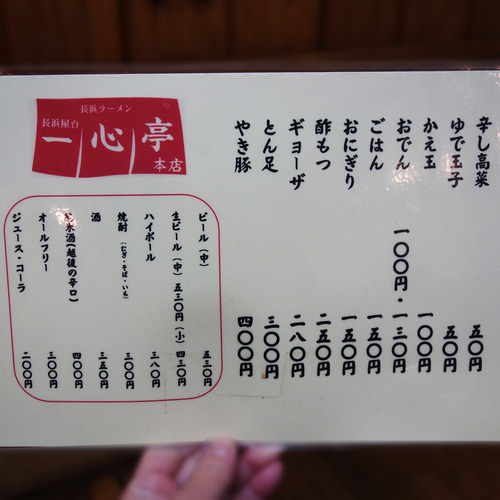 長浜ラーメン
長浜屋台
一心亭
本店
辛し高菜 五〇円
ゆで玉子 五〇円
かえ玉 一〇〇円
おでん 一〇〇円・一三〇円
ごはん 一五〇円
おにぎり 一五〇円
酢もつ 二五〇円
ギョーザ 二八〇円
とん足 三〇〇円
やき豚 四〇〇円
ビール(中) 五三〇円
生ビール(中)五三〇円(小) 四三〇円
ハイボール 三八〇円
焼酎(むぎ・そば・いも) 三〇〇円
酒 三五〇円
米酒(越後の辛口) 四〇〇円
オールフリー 三〇〇円
ジュース・コーラ 二〇〇円